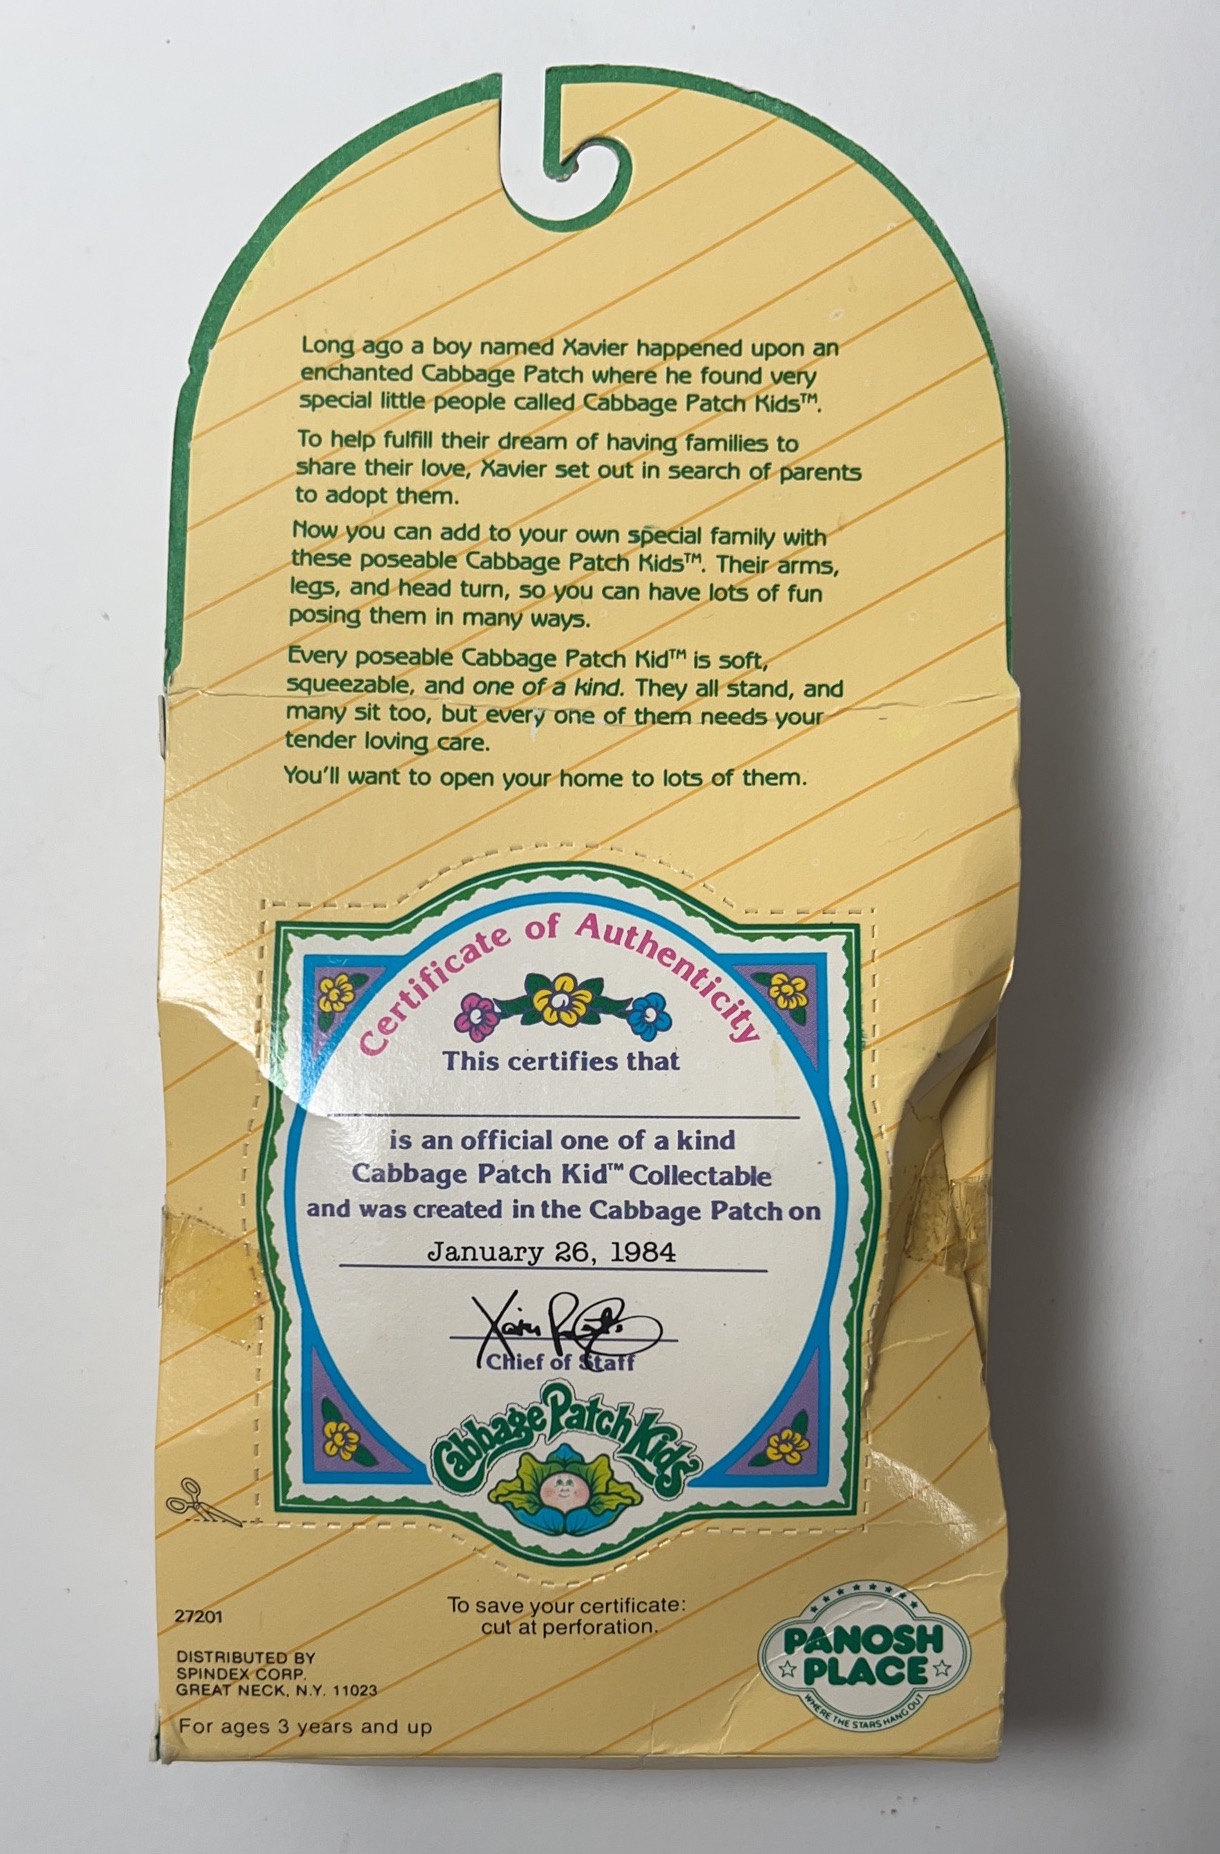 Long ago a boy named Xavier happened upon an
enchanted Cabbage Patch where he found very
special little people called Cabbage Patch Kids™.
To help fulfill their dream of having families to
share their love, Xavier set out in search of parents
to adopt them.
Now you can add to your own special family with
these poseable Cabbage Patch Kids™. Their arms,
legs, and head turn, so you can have lots of fun
posing them in many ways.
Every poseable Cabbage Patch Kid™ is soft,
squeezable, and one of a kind. They all stand, and
many sit too, but every one of them needs your
tender loving care.
You'll want to open your home to lots of them.
Certificate of Authenticity
This certifies that
is an official one of a kind
Cabbage Patch Kid™ Collectable
and was created in the Cabbage Patch on
January 26, 1984
Chief of Staff
Cabbage Patch Kids
To save your certificate:
cut at perforation.
27201
DISTRIBUTED BY
SPINDEX CORP.
GREAT NECK, N.Y. 11023
For ages 3 years and up
PANOSH
PLACE
WHERE THE STARS HANG OUT